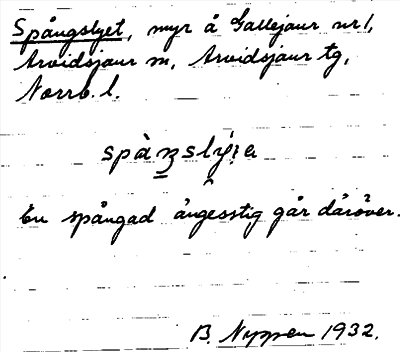 Spångslyet, myr å Gallejaur nr 1,
Arvidsjaur sn, Arvidsjaur tg,
Norrb. l.
En spångad ångesstig går däröver.
B. Nyppen 1932.